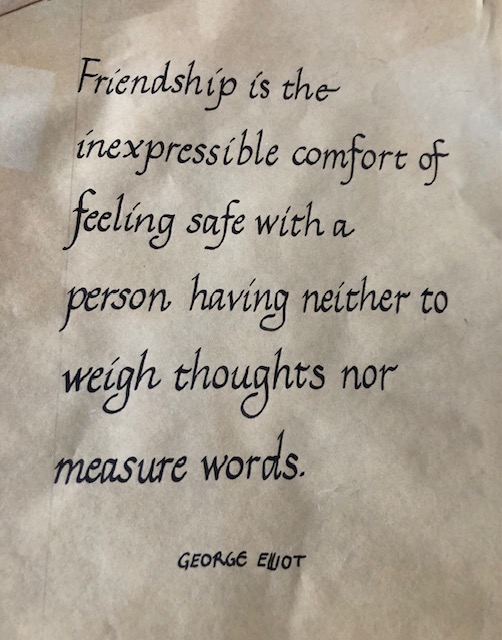 Friendship is the
inexpressible comfort of
feeling safe with a
person having neither to
weigh thoughts nor
measure words.
GEORGE ELLIOT